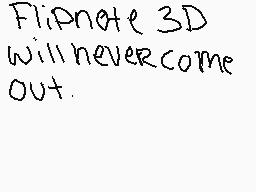 Flipnote 3D
will never come
out.